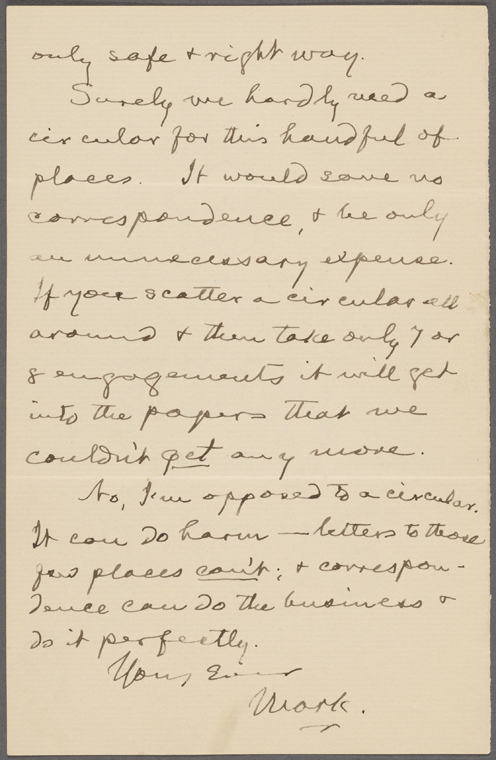 only safe & right way.
Surely we hardly need a
circular for this handful of
places. It would save no
correspondence, & be only
an unnecessary expense.
If you scatter a circular all
around & then take only 7 or
8 engagements it will get
into the papers that we
couldn't get any more.
No, I'm opposed to a circular.
It can do harm — letters to those
few places can't; & correspon-
dence can do the business &
do it perfectly.
Yours Ever
Mark.